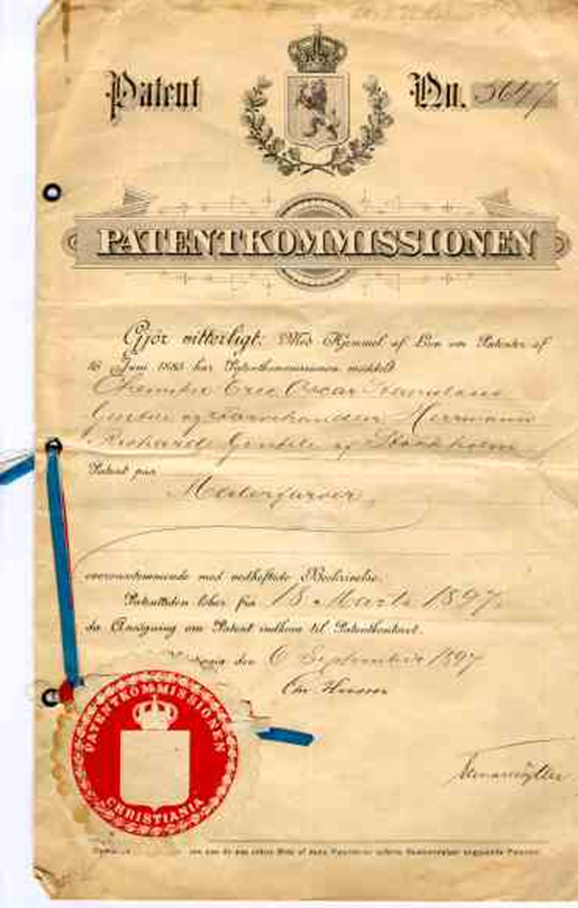 Patent No. 5647
PATENTKOMMISSIONEN
Gjör vitterligt: Med Hjemmel af Lov om Patenter af
16 Juni 1885 har Patentkommissionen meddelt
Chemiker Eric Oscar
og Farvehandler Herrmann
Richard Gentele af Stockholm
Patent paa
Malerfarver,
overensstemmende med vedheftede Beskrivelse.
Patenttiden löber fra 18 Marts 1897,
da Ansögning om Patent indkom til Patentkontoret.
den 6 September 1897
PATENTKOMMISSIONEN
CHRISTIANIA